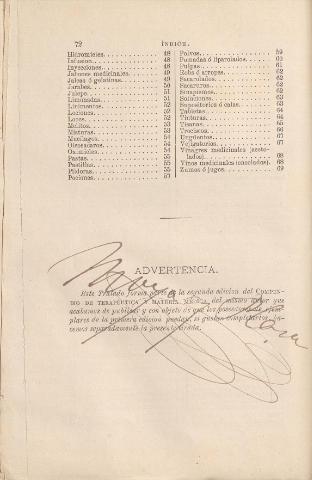 72 ÍNDICE.
Hidromieles. 48
Infusion. 48
Inyecciones. 48
Jabones medicinales. 49
Jaleas ó gelatinas. 49
Jarabes. 50
Julepe. 51
Limonadas. 51
Linimentos. 52
Lociones. 52
Looes. 52
Melitos. 53
Misturas. 53
Mucílagos. 54
Oleosacaros. 54
Oximieles. 54
Pastas. 55
Pastillas. 55
Píldoras. 55
Pociones. 57
Polvos. 59
Pomadas ó liparolados. 60
Pulpas. 61
Robs ó arropes. 62
Sacarolados. 62
Sacaruros. 62
Sinapismos. 62
Soluciones. 62
Supositorios ó calas. 63
Tabletas. 64
Tinturas. 64
Tisanas. 65
Trociscos. 66
Ungüentos. 67
Vejigatorios. 67
Vinagres medicinales (aceto-
lados). 68
Vinos medicinales (enolados). 68
Zumos ó jugos. 69
ADVERTENCIA.
Este Tratado forma parte de la segunda edicion del COMPEN-
DIO DE TERAPÉUTICA Y MATERIA MÉDICA, del mismo autor que
acabamos de publicar y con objeto de que los poseedores de ejem-
plares de la primera edicion puedan, si gustan completarlos, ha-
cemos separadamente la presente tirada.